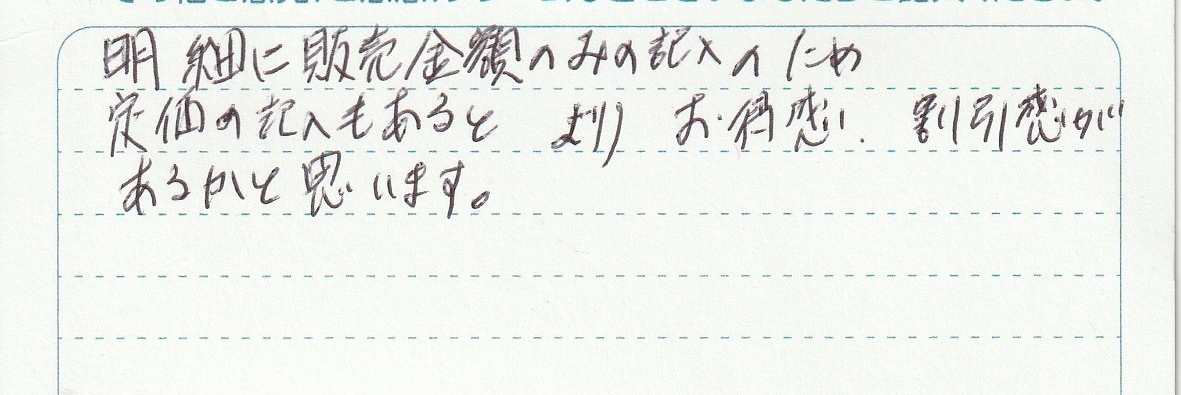 明細に販売金額のみの記入のため
定価の記入もあると より お得感、割引感が
あるかと思います。